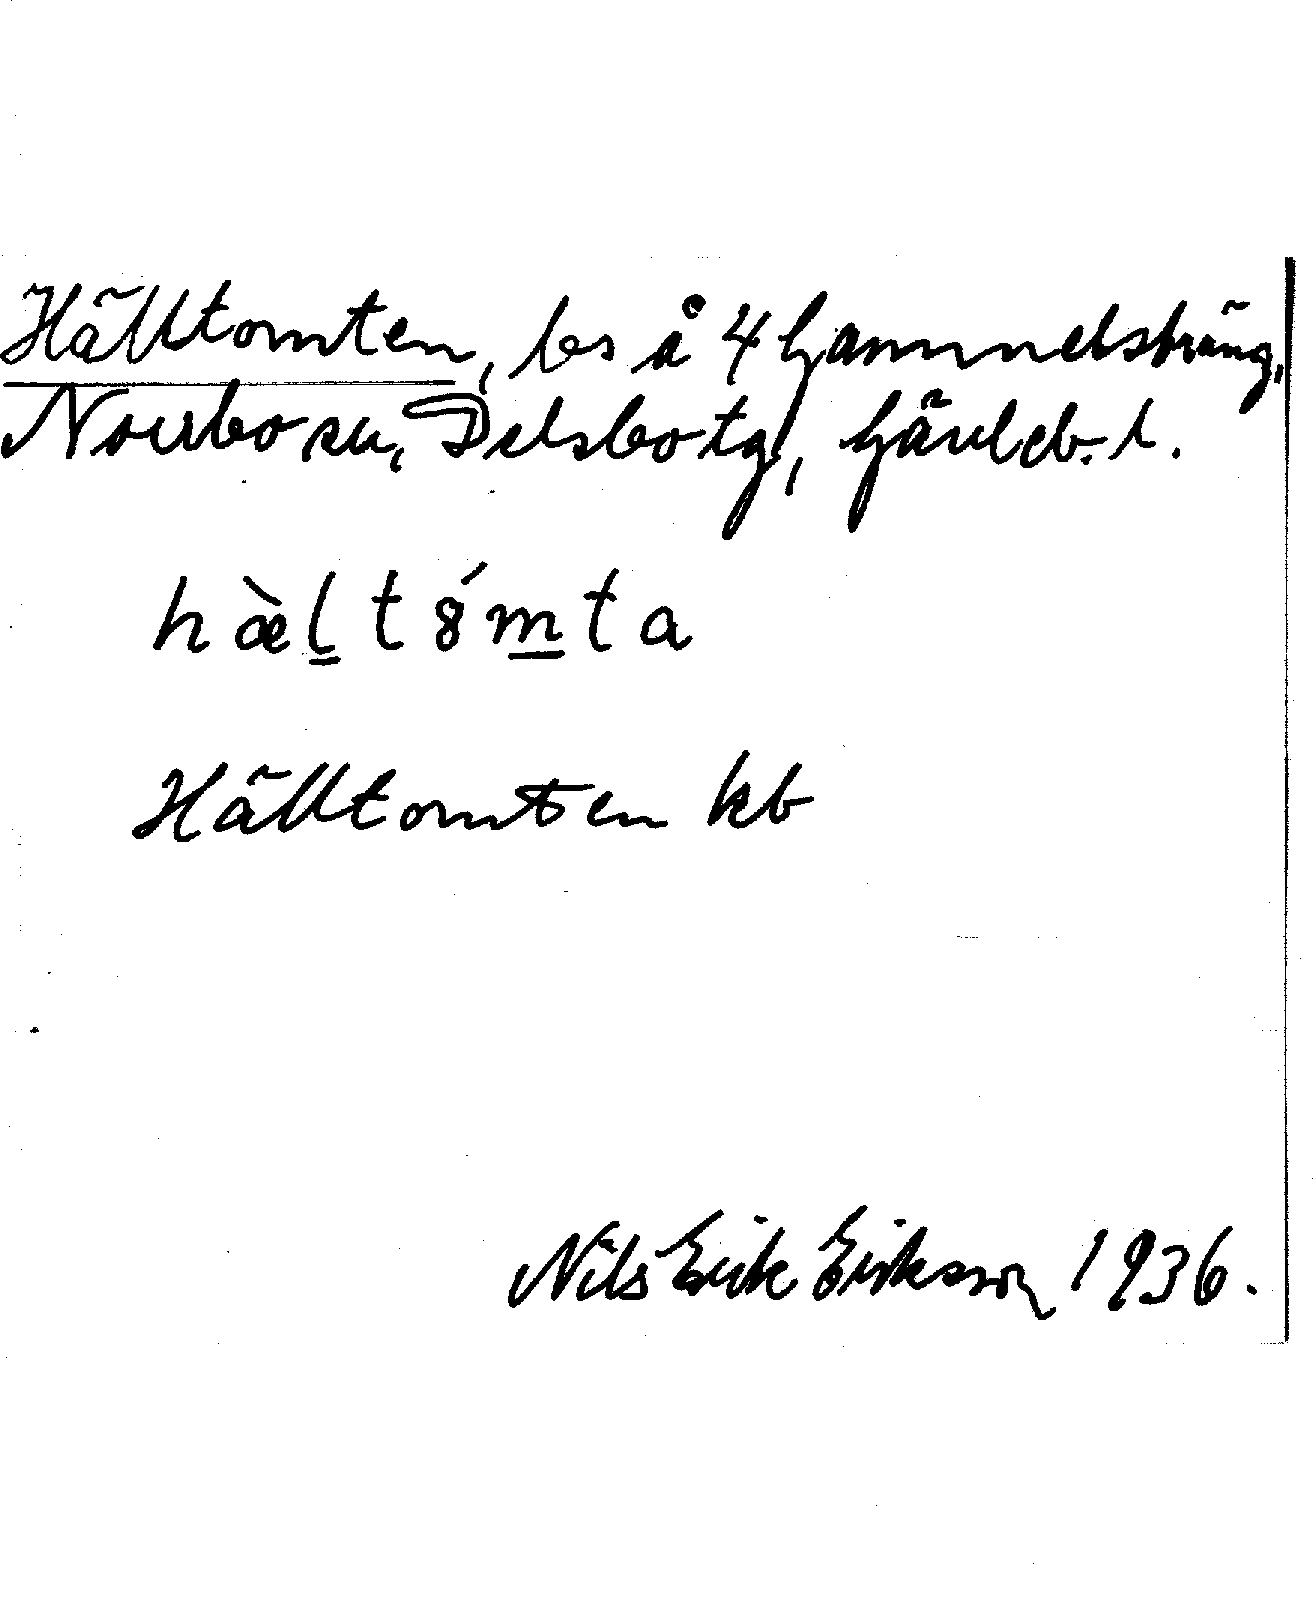 Hälltomten, bs å 4 Gammelsträng,
Norrbo sn, Delsbo tg, Gävleb. l.
hæ̀l̠tȣ́m̠ta
Hälltomten kb
Nils Erik Eriksson 1936.